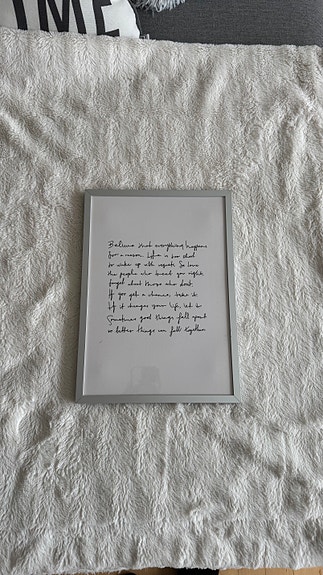 TIME
Believe that everything happens
for a reason. Life is too short
to wake up with regrets. So love
the people who treat you right,
forget about those who dont.
If you get a chance, take it.
If it changes your life, let it.
Sometimes good things fall apart
so better things can fall together.